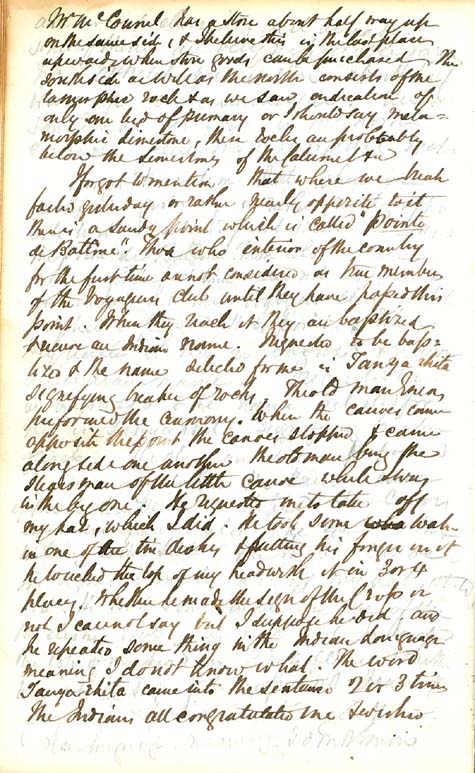 Mr McConnel has a store about half way up
on the same side, & I believe this is the last place
upwards where store goods can be purchased. The
South side as well as the north consists of the
same rock & as we saw indication of
only one bed of primary or I should say meta=
morphic limestone, these rocks are probably
below the limestones of the Calumet &c
I forgot to mention that where we
yesterday or rather nearly opposite to it
there is a sandy point which is called "Pointe
de Batême". Those who enter in of the country
for the first time are not considered as true members
of the Voyageurs Club until they have passed this
point. When they reach it they are baptized
& receive an Indian name. I requested to be bap-
tized & the name selected for me is Tanyarhita
signifying breaker of rocks. The old man
performed the ceremony. When the canoes came
opposite the point the canoes stopped & came
alongside one another the old man being the
steersman of the little canoe while I was
in the big one. He requested me to take off
my hat, which I did. He took some water
in one of the tin dishes & putting his finger in it
he touched the top of my head with it in 3 or 4
places. Whether he made the sign of the Cross or
not I cannot say but I suppose he did and
he repeated some thing in the Indian Language
meaning I do not know what. The word
Tanyarhita came into the sentence 2 or 3 times
The Indians all congratulated me